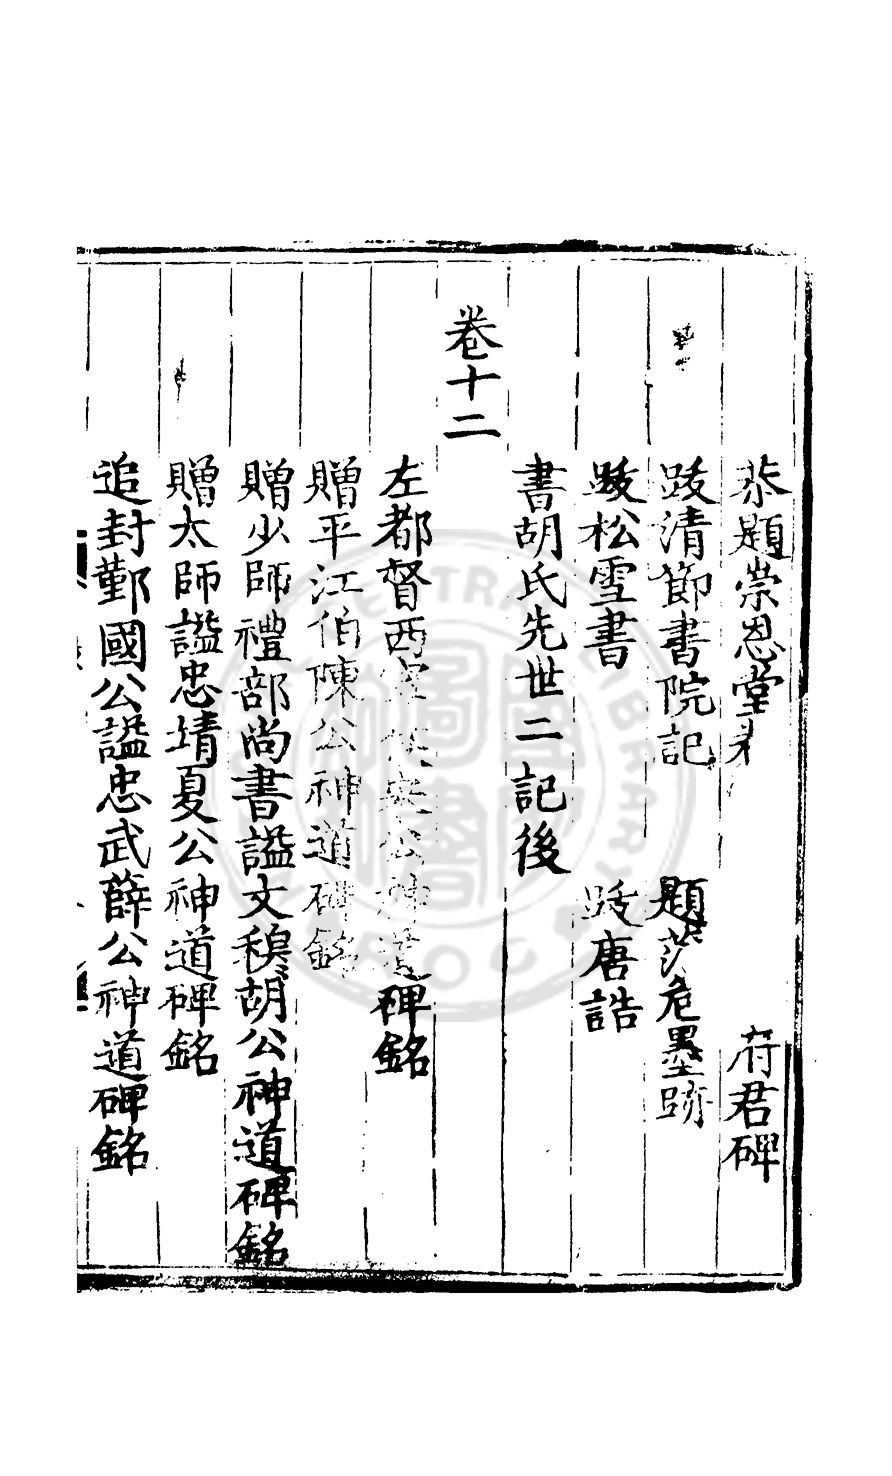 恭題崇恩堂 府君碑
跋清節書院記 題莎危墨跡
跋松雪書 跋唐誥
書胡氏先世二記後
卷十二
左都督西寧 公神道碑銘
贈平江伯陳公神道碑銘
贈少師禮部尚書謚文穆胡公神道碑銘
贈太師謚忠靖夏公神道碑銘
追封鄞國公謚忠武薛公神道碑銘